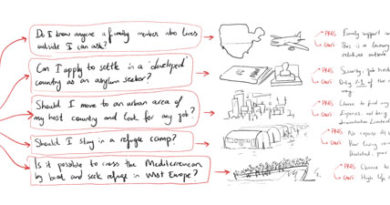 Do I know anyone a family member who lives
outside I can ask?
PROS Family support
CONS This is a luxury
relatives outside
Can I apply to settle in a 'developed'
country as an asylum seeker?
PROS Security, job
CONS Only 1% of the
way
Should I move to an urban area of
my host country and look for my job?
PROS Chance to find
CONS Expenses, not being
Should I stay in a refugee camp?
PROS No
CONS Poor living
Is it possible to cross the Mediterranean
by boat and seek refuge in West Europe?
PROS Chance to
CONS High